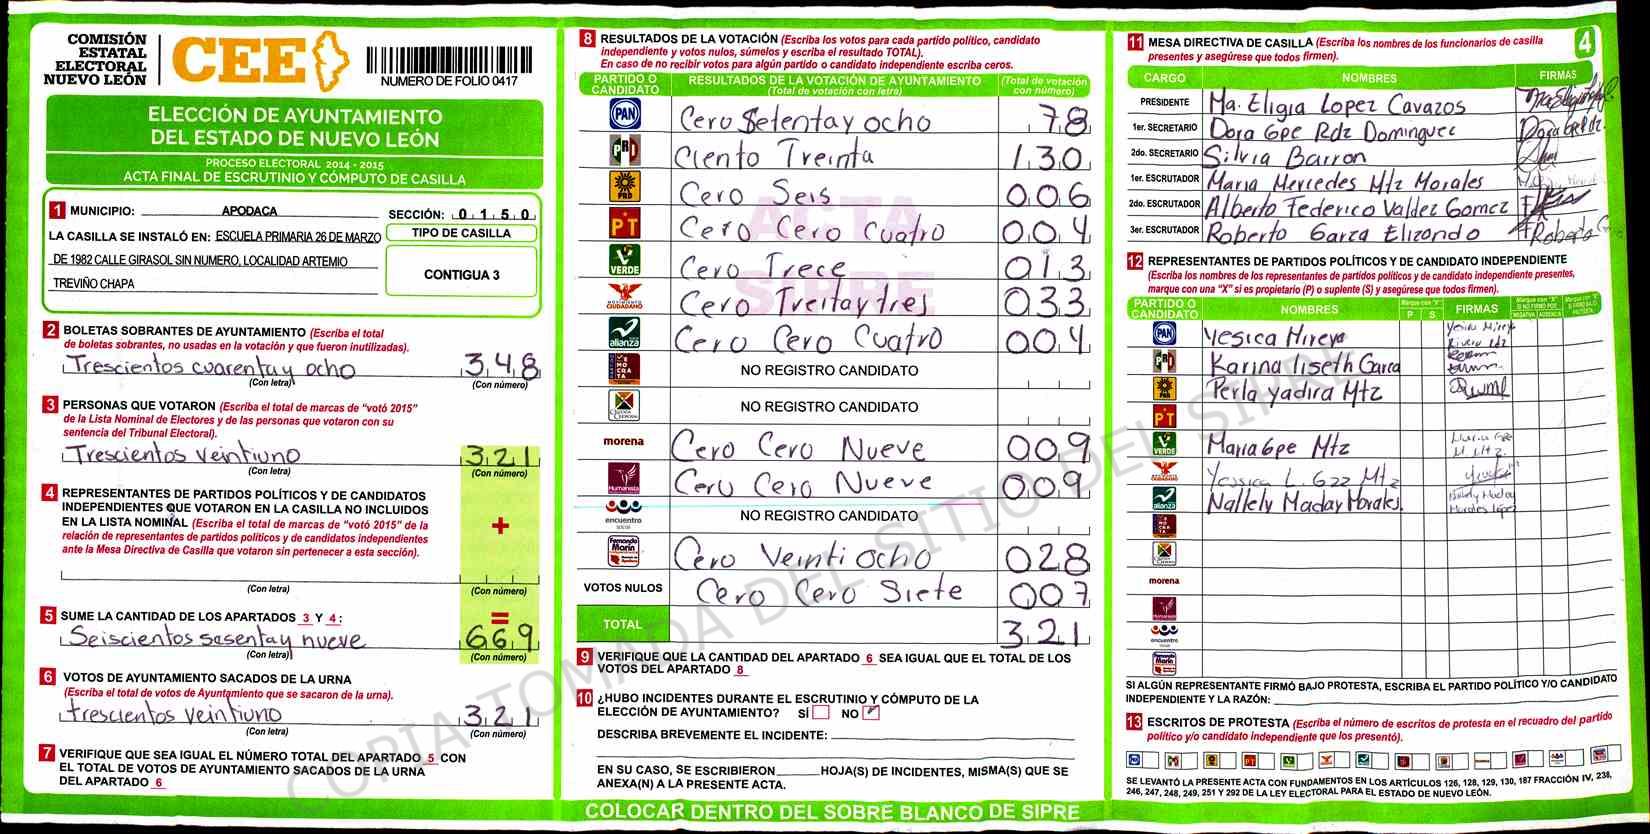 COMISIÓN
ESTATAL
ELECTORAL
NUEVO LEÓN
CEE
NUMERO DE FOLIO 0417
ELECCIÓN DE AYUNTAMIENTO
DEL ESTADO DE NUEVO LEÓN
PROCESO ELECTORAL 2014 - 2015
ACTA FINAL DE ESCRUTINIO Y CÓMPUTO DE CASILLA
1 MUNICIPIO: APODACA SECCIÓN: 0 1 5 0
LA CASILLA SE INSTALÓ EN: ESCUELA PRIMARIA 26 DE MARZO
DE 1982 CALLE GIRASOL SIN NUMERO, LOCALIDAD ARTEMIO
TREVIÑO CHAPA
TIPO DE CASILLA
CONTIGUA 3
2 BOLETAS SOBRANTES DE AYUNTAMIENTO (Escriba el total
de boletas sobrantes, no usadas en la votación y que fueron inutilizadas).
Trescientos cuarenta y ocho 3 4 8
(Con letra) (Con número)
3 PERSONAS QUE VOTARON (Escriba el total de marcas de "votó 2015"
de la Lista Nominal de Electores y de las personas que votaron con su
sentencia del Tribunal Electoral).
Trescientos veintiuno 3 2 1
(Con letra) (Con número)
4 REPRESENTANTES DE PARTIDOS POLÍTICOS Y DE CANDIDATOS
INDEPENDIENTES QUE VOTARON EN LA CASILLA NO INCLUIDOS
EN LA LISTA NOMINAL (Escriba el total de marcas de "votó 2015" de la
relación de representantes de partidos políticos y de candidatos independientes
ante la Mesa Directiva de Casilla que votaron sin pertenecer a esta sección).
+
(Con letra) (Con número)
=
5 SUME LA CANTIDAD DE LOS APARTADOS 3 Y 4:
Seiscientos sesenta y nueve 6 6 9
(Con letra) (Con número)
6 VOTOS DE AYUNTAMIENTO SACADOS DE LA URNA
(Escriba el total de votos de Ayuntamiento que se sacaron de la urna).
trescientos veintiuno 3 2 1
(Con letra) (Con número)
7 VERIFIQUE QUE SEA IGUAL EL NÚMERO TOTAL DEL APARTADO 5 CON
EL TOTAL DE VOTOS DE AYUNTAMIENTO SACADOS DE LA URNA
DEL APARTADO 6
8 RESULTADOS DE LA VOTACIÓN (Escriba los votos para cada partido político, candidato
independiente y votos nulos, súmelos y escriba el resultado TOTAL).
En caso de no recibir votos para algún partido o candidato independiente escriba ceros.
PARTIDO O CANDIDATO RESULTADOS DE LA VOTACIÓN DE AYUNTAMIENTO (Total de votación con letra) (Total de votación con número)
PAN Cero Setenta y ocho 78
PRI Ciento Treinta 130
PRD Cero Seis 006
PT Cero Cero Cuatro 004
VERDE Cero Trece 013
MOVIMIENTO CIUDADANO Cero Treitaytres 033
alianza Cero Cero Cuatro 004
NO REGISTRO CANDIDATO
NO REGISTRO CANDIDATO
morena Cero Cero Nueve 009
Humanista Cero Cero Nueve 009
encuentro social NO REGISTRO CANDIDATO
Fernando Marín Cero Veintiocho 028
VOTOS NULOS Cero Cero Siete 007
TOTAL 321
ACTA
SIPRE
9 VERIFIQUE QUE LA CANTIDAD DEL APARTADO 6 SEA IGUAL QUE EL TOTAL DE LOS
VOTOS DEL APARTADO 8
10 ¿HUBO INCIDENTES DURANTE EL ESCRUTINIO Y CÓMPUTO DE LA
ELECCIÓN DE AYUNTAMIENTO? SÍ NO ✓
DESCRIBA BREVEMENTE EL INCIDENTE:
EN SU CASO, SE ESCRIBIERON HOJA(S) DE INCIDENTES, MISMA(S) QUE SE
ANEXA(N) A LA PRESENTE ACTA.
COLOCAR DENTRO DEL SOBRE BLANCO DE SIPRE
11 MESA DIRECTIVA DE CASILLA (Escriba los nombres de los funcionarios de casilla
presentes y asegúrese que todos firmen).
4
CARGO NOMBRES FIRMAS
PRESIDENTE Ma. Eligia Lopez Cavazos
1er. SECRETARIO Dora Gpe Rdz Dominguez
2do. SECRETARIO Silvia Barron
1er. ESCRUTADOR Maria Mercedes Mtz Morales
2do. ESCRUTADOR Alberto Federico Valdez Gomez
3er. ESCRUTADOR Roberto Garza Elizondo
12 REPRESENTANTES DE PARTIDOS POLÍTICOS Y DE CANDIDATO INDEPENDIENTE
(Escriba los nombres de los representantes de partidos políticos y de candidato independiente presentes,
marque con una "X" si es propietario (P) o suplente (S) y asegúrese que todos firmen).
PARTIDO O CANDIDATO NOMBRES Marque con "X" P S FIRMAS Marque con "X" SI NO FIRMÓ POR: NEGATIVA AUSENCIA Marque con "X" SI FIRMÓ BAJO PROTESTA
PAN Yesica Mireya
PRI Karina liseth Garca
PRD Perla yadira Mtz
PT
VERDE Maria Gpe Mtz
Yessica L. Gzz Mtz
alianza Nallely Maday Morales.
morena
Humanista
encuentro
Fernando Marín
SI ALGÚN REPRESENTANTE FIRMÓ BAJO PROTESTA, ESCRIBA EL PARTIDO POLÍTICO Y/O CANDIDATO
INDEPENDIENTE Y LA RAZÓN:
13 ESCRITOS DE PROTESTA (Escriba el número de escritos de protesta en el recuadro del partido
político y/o candidato independiente que los presentó).
SE LEVANTÓ LA PRESENTE ACTA CON FUNDAMENTOS EN LOS ARTÍCULOS 126, 128, 129, 130, 187 FRACCIÓN IV, 238,
246, 247, 248, 249, 251 Y 292 DE LA LEY ELECTORAL PARA EL ESTADO DE NUEVO LEÓN.
COPIA TOMADA DEL SITIO DEL SIPRE